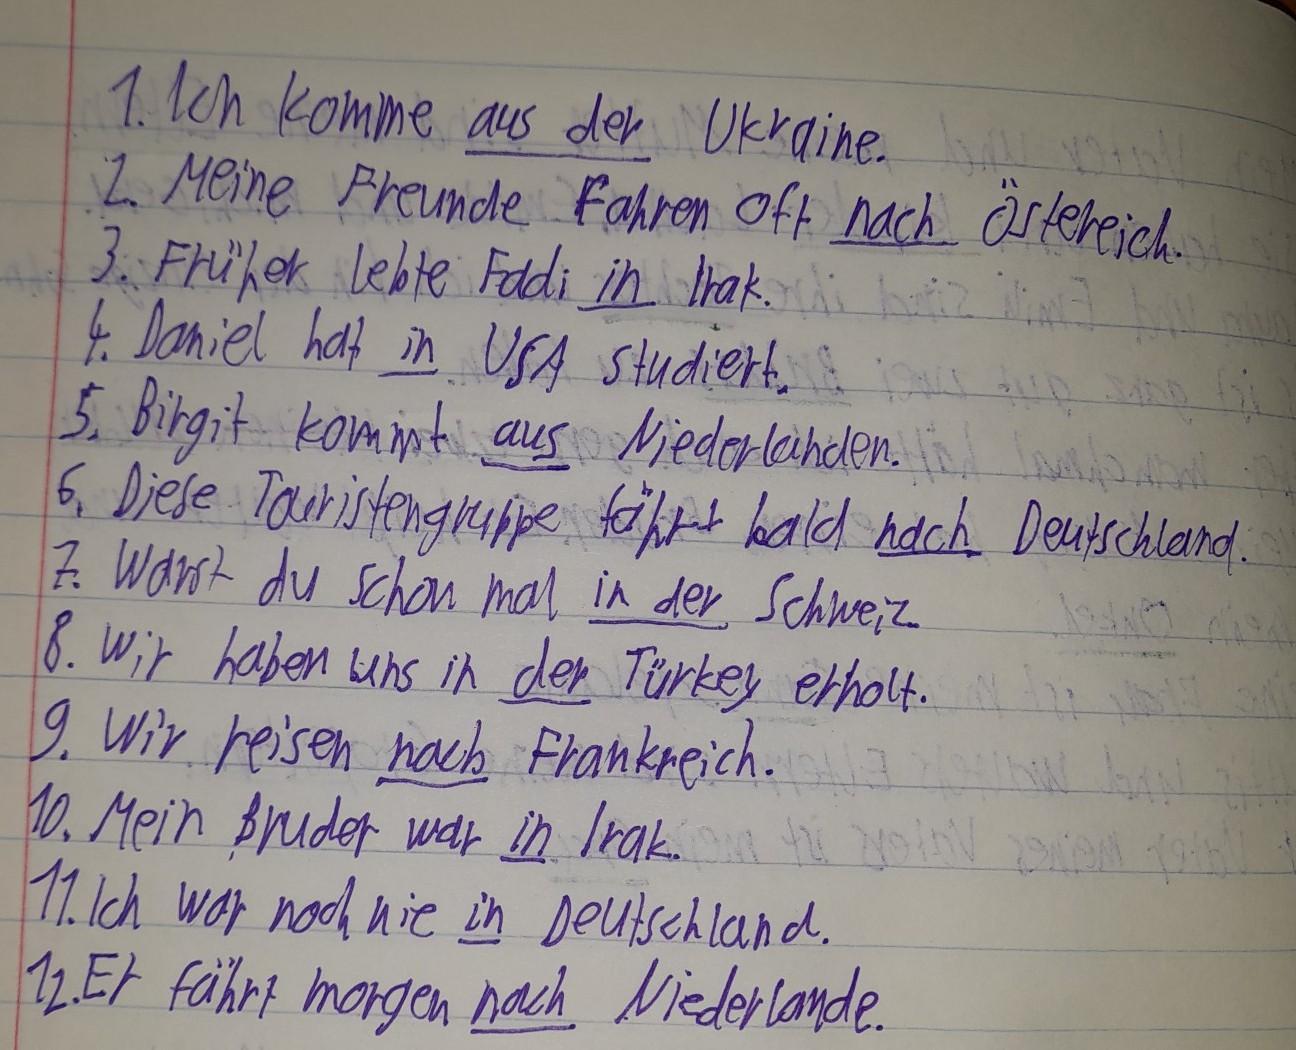 1. Ich komme aus der Ukraine.
2. Meine Freunde Fahren oft nach Östereich.
3. Früher lebte Faddi in Irak.
4. Daniel hat in USA studiert.
5. Birgit kommt aus Niederlanden.
6. Diese Touristengruppe fährt bald nach Deutschland.
7. Warst du schon mal in der Schweiz.
8. Wir haben uns in der Türkey erholt.
9. Wir reisen nach Frankreich.
10. Mein Bruder war in Irak.
11. Ich war noch nie in Deutschland.
12. Er fährt morgen nach Niederlande.